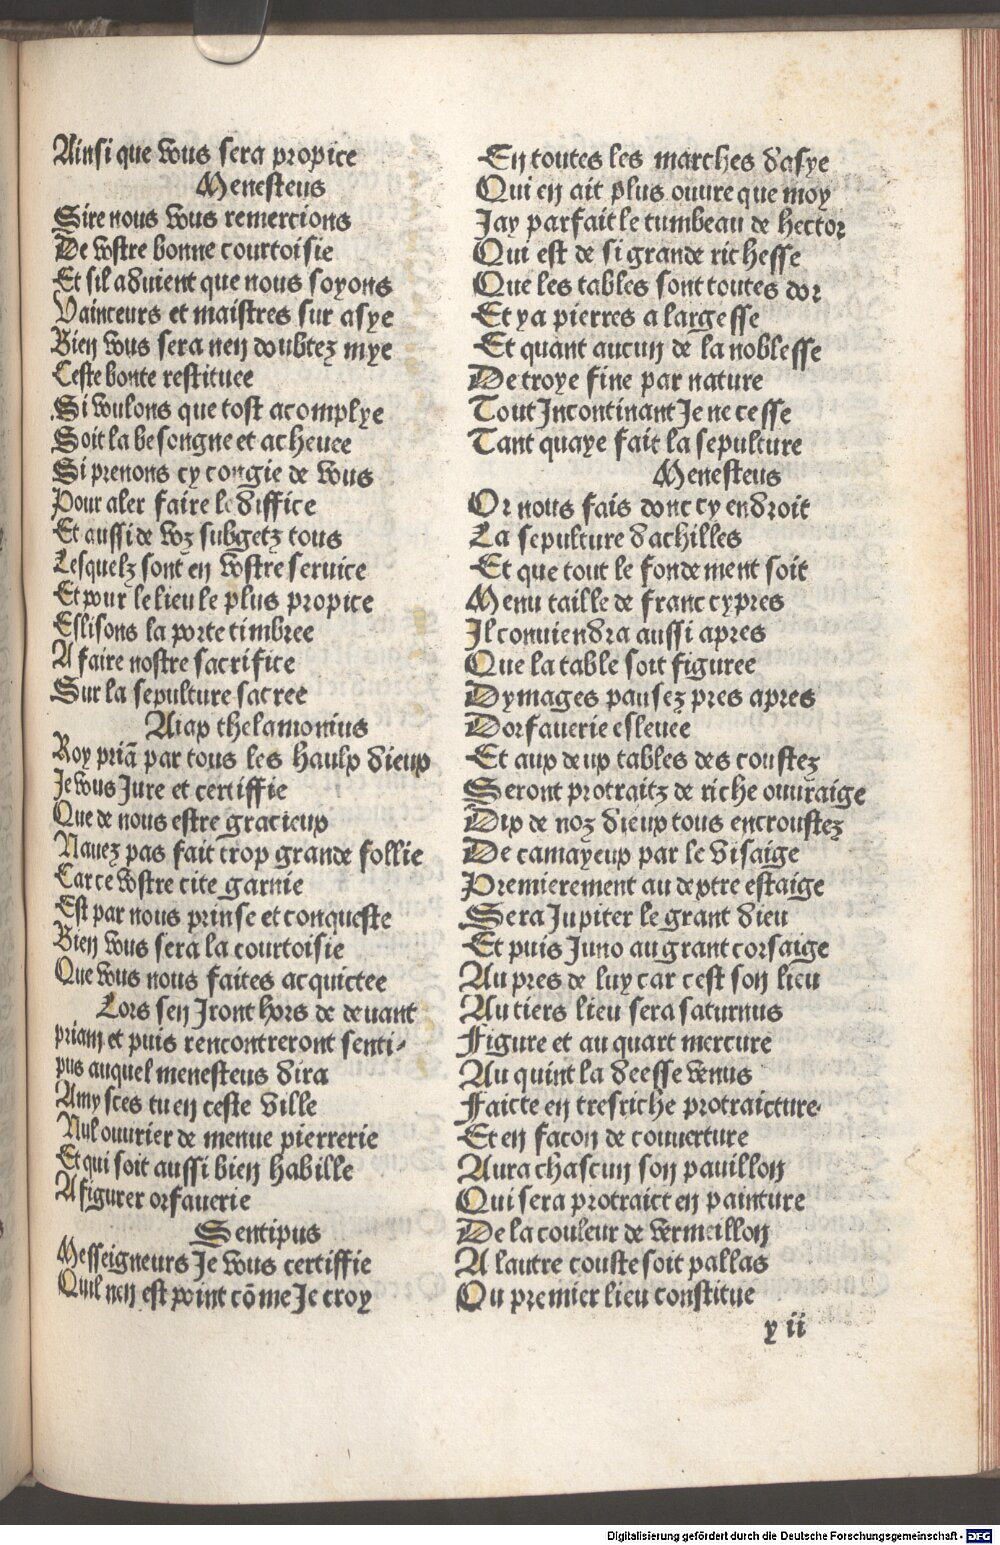 Ainsi que vous sera propice
Menesteus
Sire nous vous remercions
De vostre bonne courtoisie
Et sil aduient que nous soyons
Vainceurs et maistres sur asye
Bien vous sera nen doubtez mye
Ceste bonte restituee
Si voulons que tost acomplye
Soit la besongne et acheuee
Si prenons cy congie de vous
Pour aler faire le diffice
Et aussi de voz subgetz tous
Lesquelz sont en vostre seruice
Et pour le lieu le plus propice
Eslisons la porte timbree
A faire nostre sacrifice
Sur la sepulture sacree
Aiax thelamonius
Roy priā par tous les haulx dieux
Je vous Jure et certiffie
Que de nous estre gracieux
Nauez pas fait trop grande follie
Car ce vostre cite garnie
Est par nous prinse et conqueste
Bien vous sera la courtoisie
Que vous nous faites acquictee
Lors sen Jront hors de deuant
priam et puis rencontreront senti-
pus auquel menesteus dira
Amy sces tu en ceste ville
Nul ouurier de menue pierrerie
Et qui soit aussi bien habille
A figurer orfauerie
Sentipus
Messeigneurs Je vous certiffie
Quil nen est point cōme Je croy
En toutes les marches dasye
Qui en ait plus ouure que moy
Jay parfait le tumbeau de hector
Qui est de si grande richesse
Que les tables sont toutes dor
Et y a pierres a largesse
Et quant aucun de la noblesse
De troye fine par nature
Tout Jncontinant Je ne cesse
Tant quaye fait la sepulture
Menesteus
Or nous fais donc cy endroit
La sepulture dachilles
Et que tout le fondement soit
Menu taille de franc cypres
Il conuiendra aussi apres
Que la table soit figuree
Dymages pausez pres apres
Dorfauerie esleuee
Et aux deux tables des coustez
Seront protraitz de riche ouuraige
Dix de noz dieux tous encroustez
De camayeux par le visaige
Premierement au dextre estaige
Sera Jupiter le grant dieu
Et puis Juno au grant corsaige
Au pres de luy car cest son lieu
Au tiers lieu sera saturnus
Figure et au quart mercure
Au quint la deesse venus
Faicte en tresriche protraicture
Et en facon de couuerture
Aura chascun son pauillon
Qui sera protraict en painture
De la couleur de vermeillon
A lautre couste soit pallas
Ou premier lieu constitue
y ii
Digitalisierung gefördert durch die Deutsche Forschungsgemeinschaft - DFG